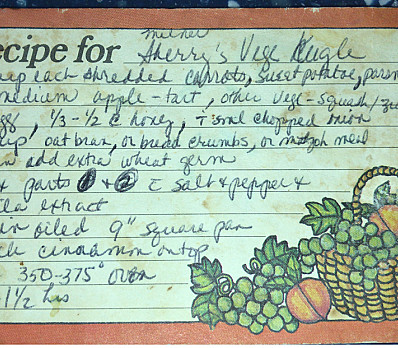 Milner
ecipe for Sherry's Vege Kugle
each shredded carrots, sweet potatoe, parsn
medium apple - tart, other vege - squash/zu
gg, 1/3 - 1/2 c honey, 1 sml chopped onion
up, oat bran, or bread crumbs, or matzoh meal
add extra wheat germ
parts 1 + 2 c salt + pepper +
lla extract
in oiled 9" square pan
cinnamon on top
350-375° oven
1 1/2 hrs